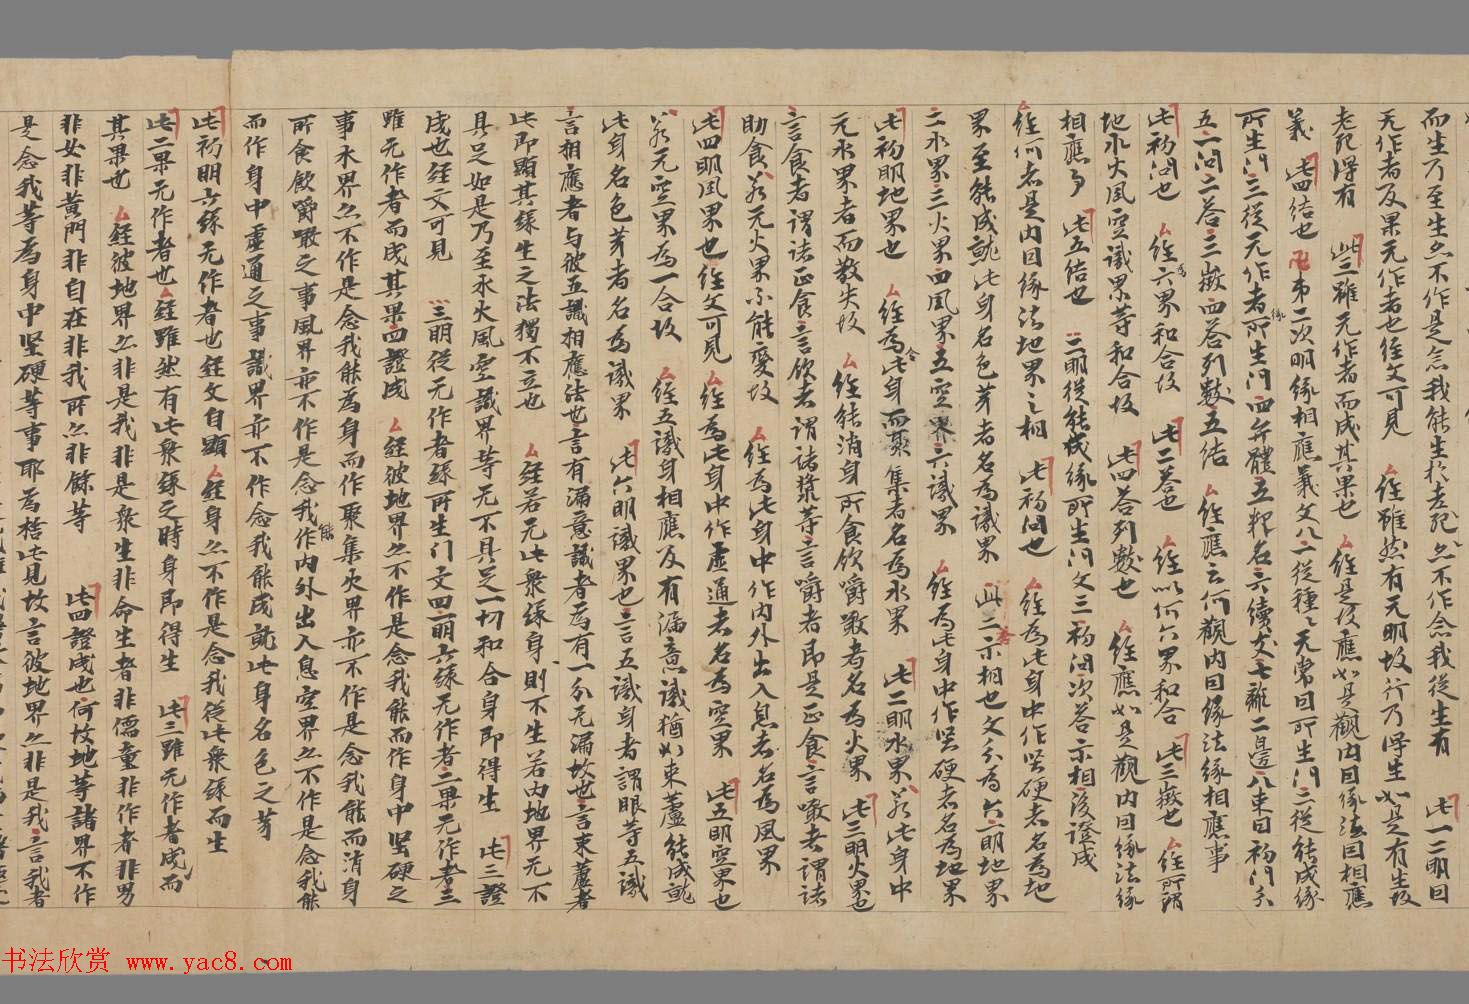 而生乃至生亦不作是念我能生於老死亦不作念我從生有 此一二明因
无作者及果无作者也經文可見 經雖然有无明故行乃得生如是有生故
老死得有 此三雖无作者而成其果也 經是故應如是觀內因緣法因相應
義 此四結也 第二次明緣相應義文八二從種々无常因所生門二從能成緣
所生門三從无作者緣所生門四弁體五釋名六續文七離二邊八束因初門分
五一問二答三徵四答列數五結 經應云何觀內因緣法緣相應事
此初問也 經為六界和合故 此二答也 經以何六界和合 此三徵也 經所謂
地水火風空識界等和合故 此四答列數也 經應如是觀內因緣法緣
相應事 此五結也 二明從能成緣所生門文三初問次答示相後證成
經何者是內因緣法地界之相 此初問也 經為此身中作堅硬者名為地
界至能成就此身名色芽者名為識界 此二示相也文分為六一明地界
二水界三火界四風界五空界六識界 經為此身中作堅硬者名為地界
此初明地界也 經為令此身而聚集者名為水界 此二明水界若此身中
无水界者而散失故 經能消身所食飲嚼噉者名為火界 此三明火界也
言食者謂諸正食言飲者謂諸漿等言嚼者即是正食言噉者謂諸
助食若无火界不能變故 經為此身中作內外出入息者名為風界
此四明風界也經文可見 經為此身中作虛通者名為空界 此五明空界也
若无空界為一合故 經五識身相應及有漏意識猶如束蘆能成就
此身名色芽者名為識界 此六明識界也言五識身者謂眼等五識
言相應者与彼五識相應法也言有漏意識者為有一分无漏故也言束蘆者
此即顯其緣生之法獨不立也 經若无此眾緣身則不生若內地界无不
具足如是乃至水火風空識界等无不具足一切和合身即得生 此三證
成也經文可見 三明從无作者緣所生门文四一明六緣无作者二果无作者三
雖无作者而成其果四證成 經彼地界亦不作是念我能而作身中堅硬之
事水界亦不作是念我能為身而作聚集火界亦不作是念我能而消身
所食飲嚼噉之事風界亦不作是念我能作內外出入息空界亦不作是念我能
而作身中虛通之事識界亦不作念我能成就此身名色之芽
此初明六緣无作者也經文自顯 經身亦不作是念我從此眾緣而生
此二果无作者也 經雖然有此眾緣之時身即得生 此三雖无作者成而
其果也 經彼地界亦非是我非是眾生非命生者非儒童非作者非男
非女非黃門非自在非我所亦非餘等 此四證成也何故地等諸界不作
是念我等為身中堅硬等事耶為栝此見故言彼地界亦非是我言我者
书法欣赏 www.yac8.com